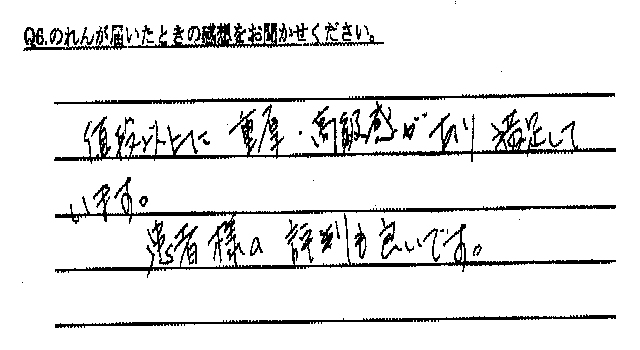 Q6.のれんが届いたときの感想をお聞かせください。
値段以上に重厚・高級感があり満足して
います。
患者様の評判も良いです。